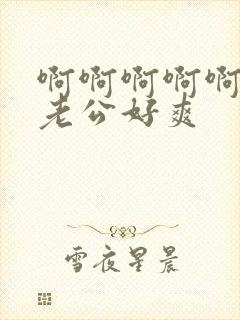 啊啊啊啊啊
老公好爽
雪夜星晨